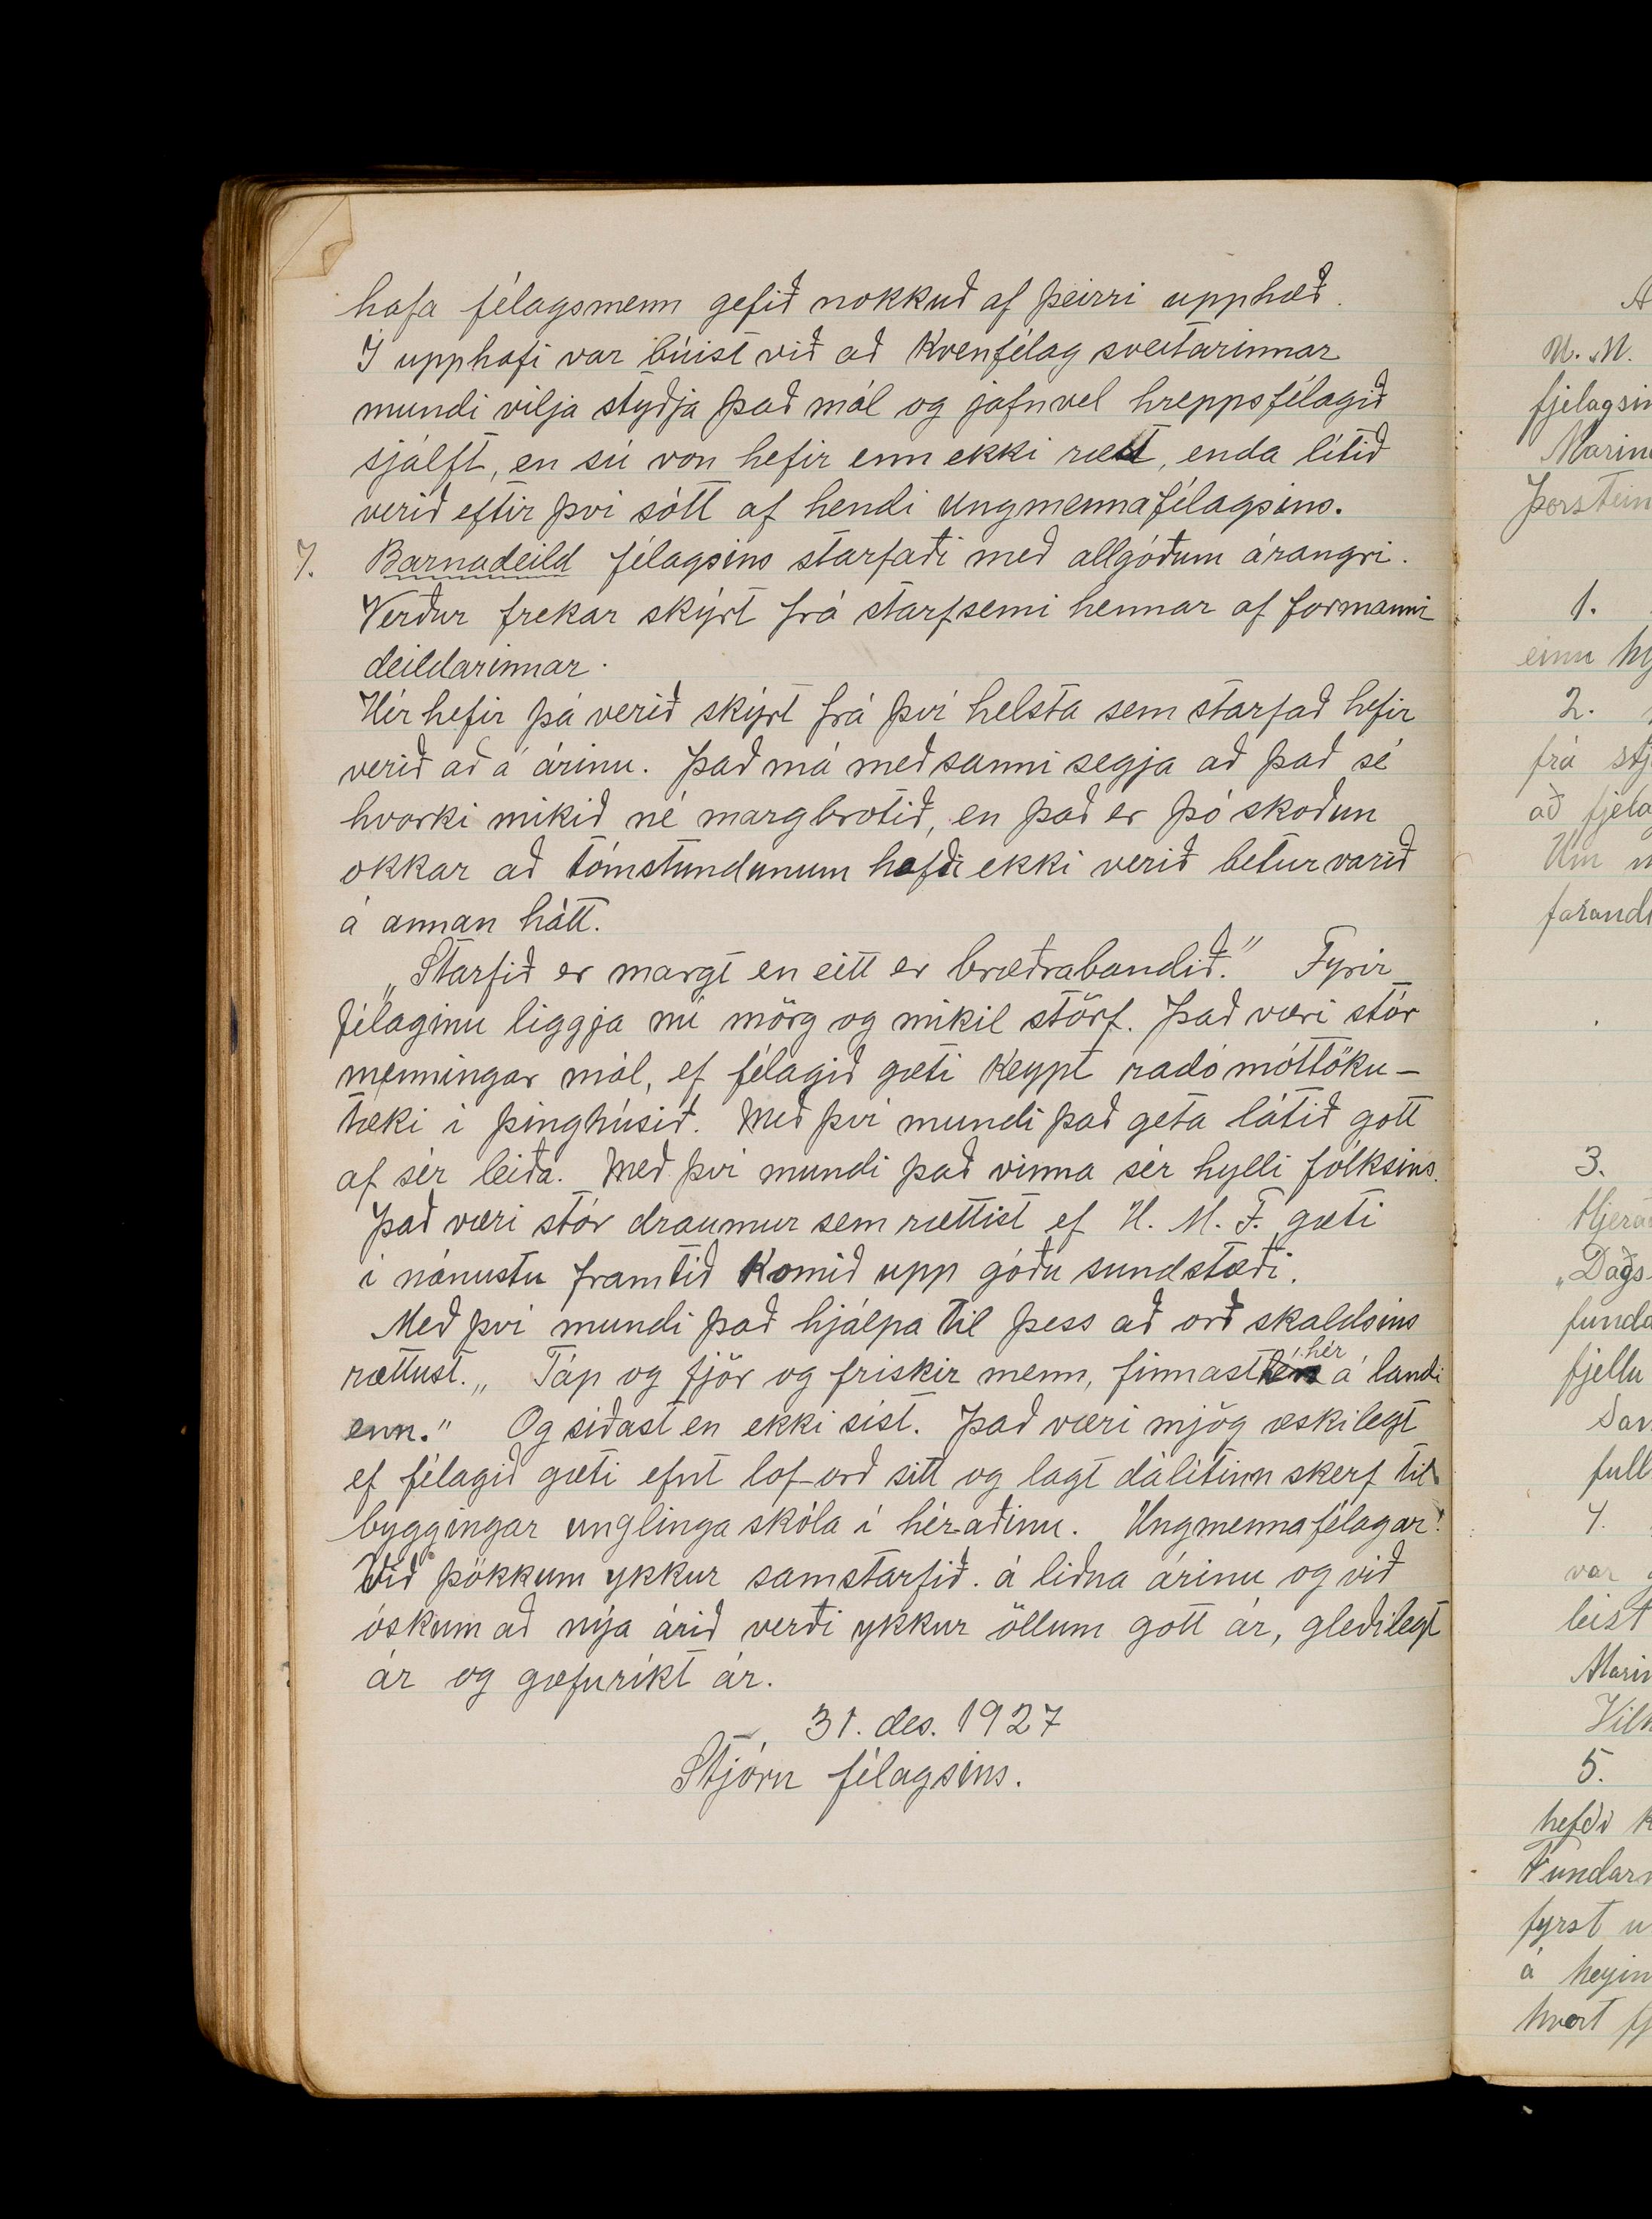 hafa félagsmenn gefið nokkuð af þeirri upphæð.
Í upphafi var búist við að Kvenfélag sveitarinnar
mundi vilja styðja það mál og jafnvel hreppsfélagið
sjálft, en sú von hefir enn ekki ræst, enda lítið
verið eftir því sótt af hendi Ungmennafélagsins.
7. Barnadeild félagsins starfaði með allgóðum árangri.
Verður frekar skýrt frá starfsemi hennar af formanni
deildarinnar.
Hér hefir þá verið skýrt frá því helsta sem starfað hefir
verið að á árinu. Það má með sanni segja að það sé
hvorki mikið né margbrotið, en það er þó skoðun
okkar að tómstundunum hafði ekki verið betur varið
á annan hátt.
„Starfið er margt en eitt er bræðrabandið." Fyrir
félaginu liggja nú mörg og mikil störf. Það væri stór
menningar mál, ef félagið gæti keypt radó móttöku-
tæki í þinghúsið. Með því mundi það geta látið gott
af sér leiða. Með því mundi það vinna sér hylli fólksins.
Það væri stór draumur sem rættist ef U. M. F. gæti
í nánustu framtíð komið upp góðu sundstæði.
Með því mundi það hjálpa til þess að orð skaldsins
rættust. „Táp og fjör og friskir menn, finnast hér á landi
enn." Og síðast en ekki síst. Það væri mjög æskilegt
ef félagið gæti efnt lof-orð sitt og lagt dálítinn skerf til
byggingar unglinga skóla í hér-aðinu. Ungmennafélagar!
Við þökkum ykkur samstarfið. á liðna árinu og við
óskum að nýja árið verði ykkur öllum gott ár, gleðilegt
ár og gæfuríkt ár.
31. des. 1927
Stjórn félagsins.
U. M.
fjelagsin
Marin
Þorstein
1.
einu
2.
frá stj
að fjela
Um
farand
3.
Hjera
„Dags-
funda
fjellu
Sam
full
4.
var
leist
Marin
Vilh
5.
hefði k
Fundar
fyrst u
á heyin
hvort fj